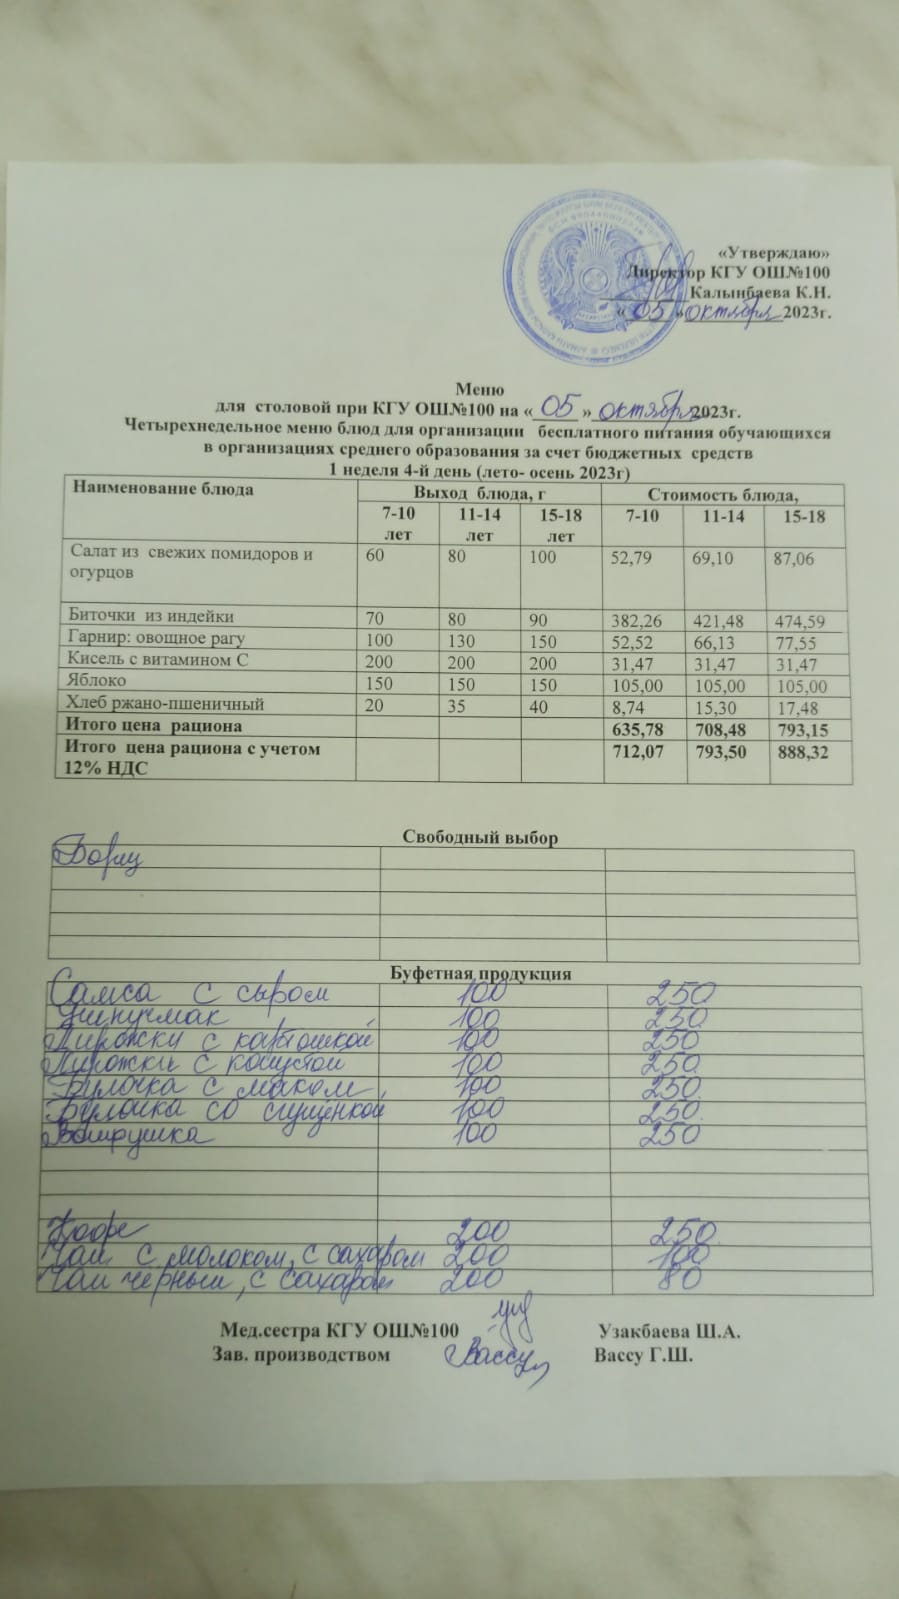 «Утверждаю»
Директор КГУ ОШ№100
Калынбаева К.Н.
«05» октября 2023г.
Меню
для столовой при КГУ ОШ№100 на «05» октября 2023г.
Четырехнедельное меню блюд для организации бесплатного питания обучающихся
в организациях среднего образования за счет бюджетных средств
1 неделя 4-й день (лето- осень 2023г)
Наименование блюда Выход блюда, г Стоимость блюда,
7-10 лет 11-14 лет 15-18 лет 7-10 11-14 15-18
Салат из свежих помидоров и 60 80 100 52,79 69,10 87,06
огурцов
Биточки из индейки 70 80 90 382,26 421,48 474,59
Гарнир: овощное рагу 100 130 150 52,52 66,13 77,55
Кисель с витамином С 200 200 200 31,47 31,47 31,47
Яблоко 150 150 150 105,00 105,00 105,00
Хлеб ржано-пшеничный 20 35 40 8,74 15,30 17,48
Итого цена рациона 635,78 708,48 793,15
Итого цена рациона с учетом 712,07 793,50 888,32
12% НДС
Свободный выбор
Борщ
Буфетная продукция
Самса с сыром 100 250
Учпучмак 100 250
Пирожки с картошкой 100 250
Пирожки с капустой 100 250
Булочка с маком 100 250
Булочка со сгущенкой 100 250
Ватрушка 100 250
Кофе 200 250
Чай с молоком, с сахаром 200 100
Чай черный, с сахаром 200 80
Мед.сестра КГУ ОШ№100 Узакбаева Ш.А.
Зав. производством Вассу Вассу Г.Ш.